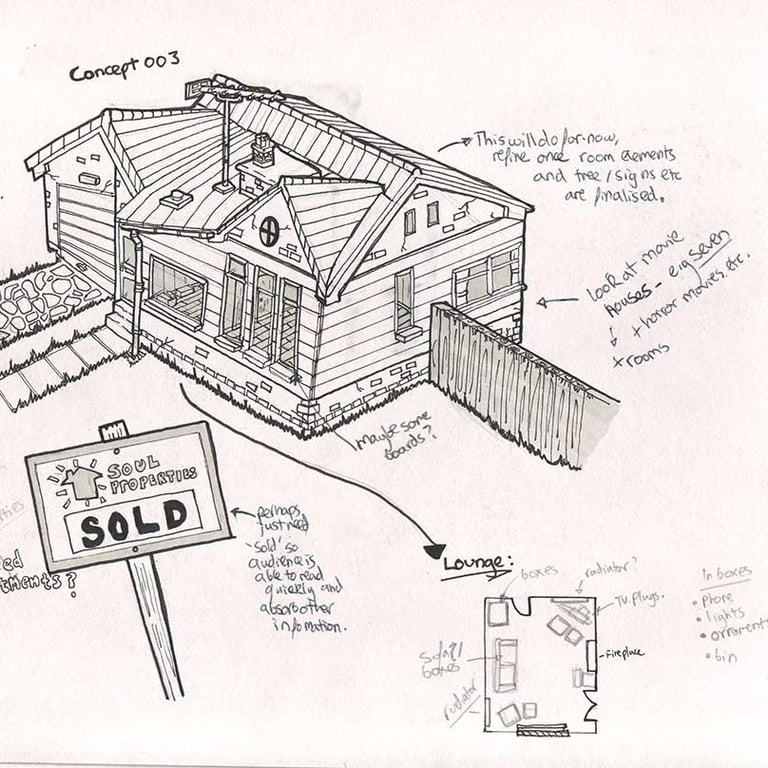 Concept 003
This will do for now,
refine once room elements
and tree / signs etc
are finalised.
look at movie
houses - e.g seven
+ horror movies. etc.
+ rooms
Maybe some
boards?
SOUL
PROPERTIES
SOLD
perhaps
just need
'sold' so
audience is
able to read
quickly and
absorb other
information.
Lounge:
boxes
radiator?
TV. plugs.
Fireplace
Sofa?/
boxes
radiator
In boxes
• phone
• lights
• ornaments
• bin